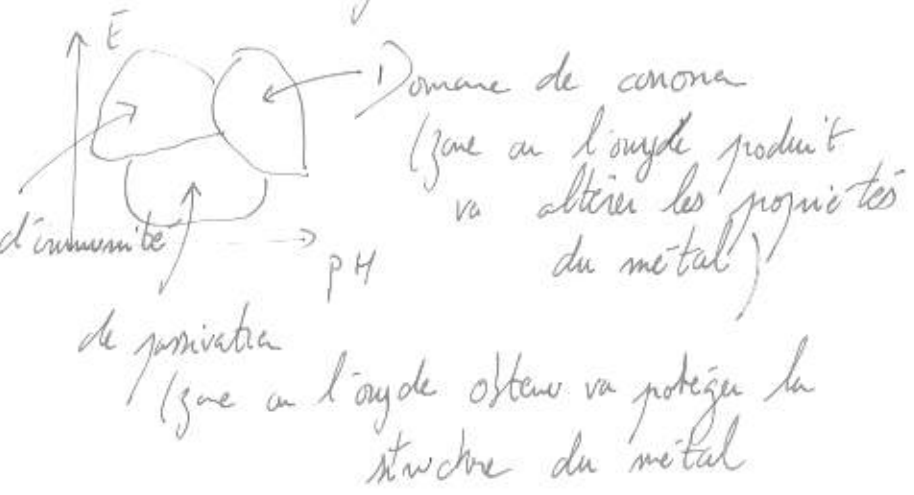 E
Domaine de corrosion
(zone où l'oxyde produit
va altérer les propriétés
du métal)
d'immunité
pH
de passivation
(zone où l'oxyde obtenu va protéger la
structure du métal